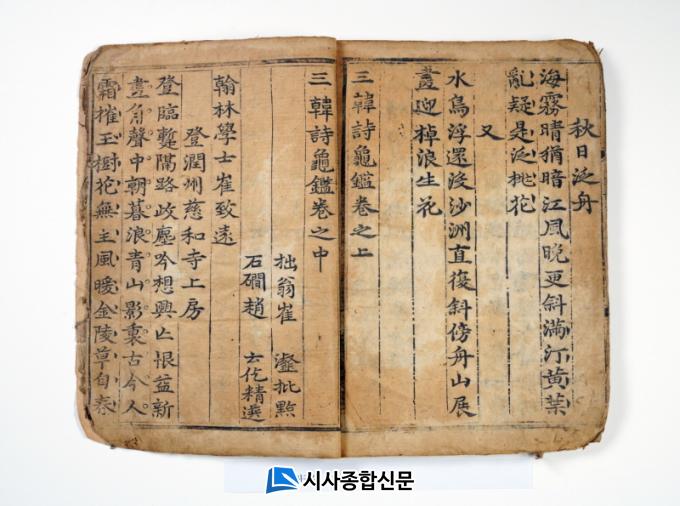 秋日泛舟
海霧晴猶暗江風晩更斜滿汀黃葉
亂疑是泛桃花
又
水鳥浮還沒沙洲直復斜傍舟山展
畫迎棹浪生花
三韓詩龜鑑卷之上
三韓詩龜鑑卷之中
拙翁崔 瀣批點
石磵趙 云仡精選
翰林學士崔致遠
登潤州慈和寺上房
登臨蹔隔路岐塵吟想興亡恨益新
畫角聲中朝暮浪青山影裏古今人
霜摧玉樹花無主風暖金陵草自春
시사종합신문